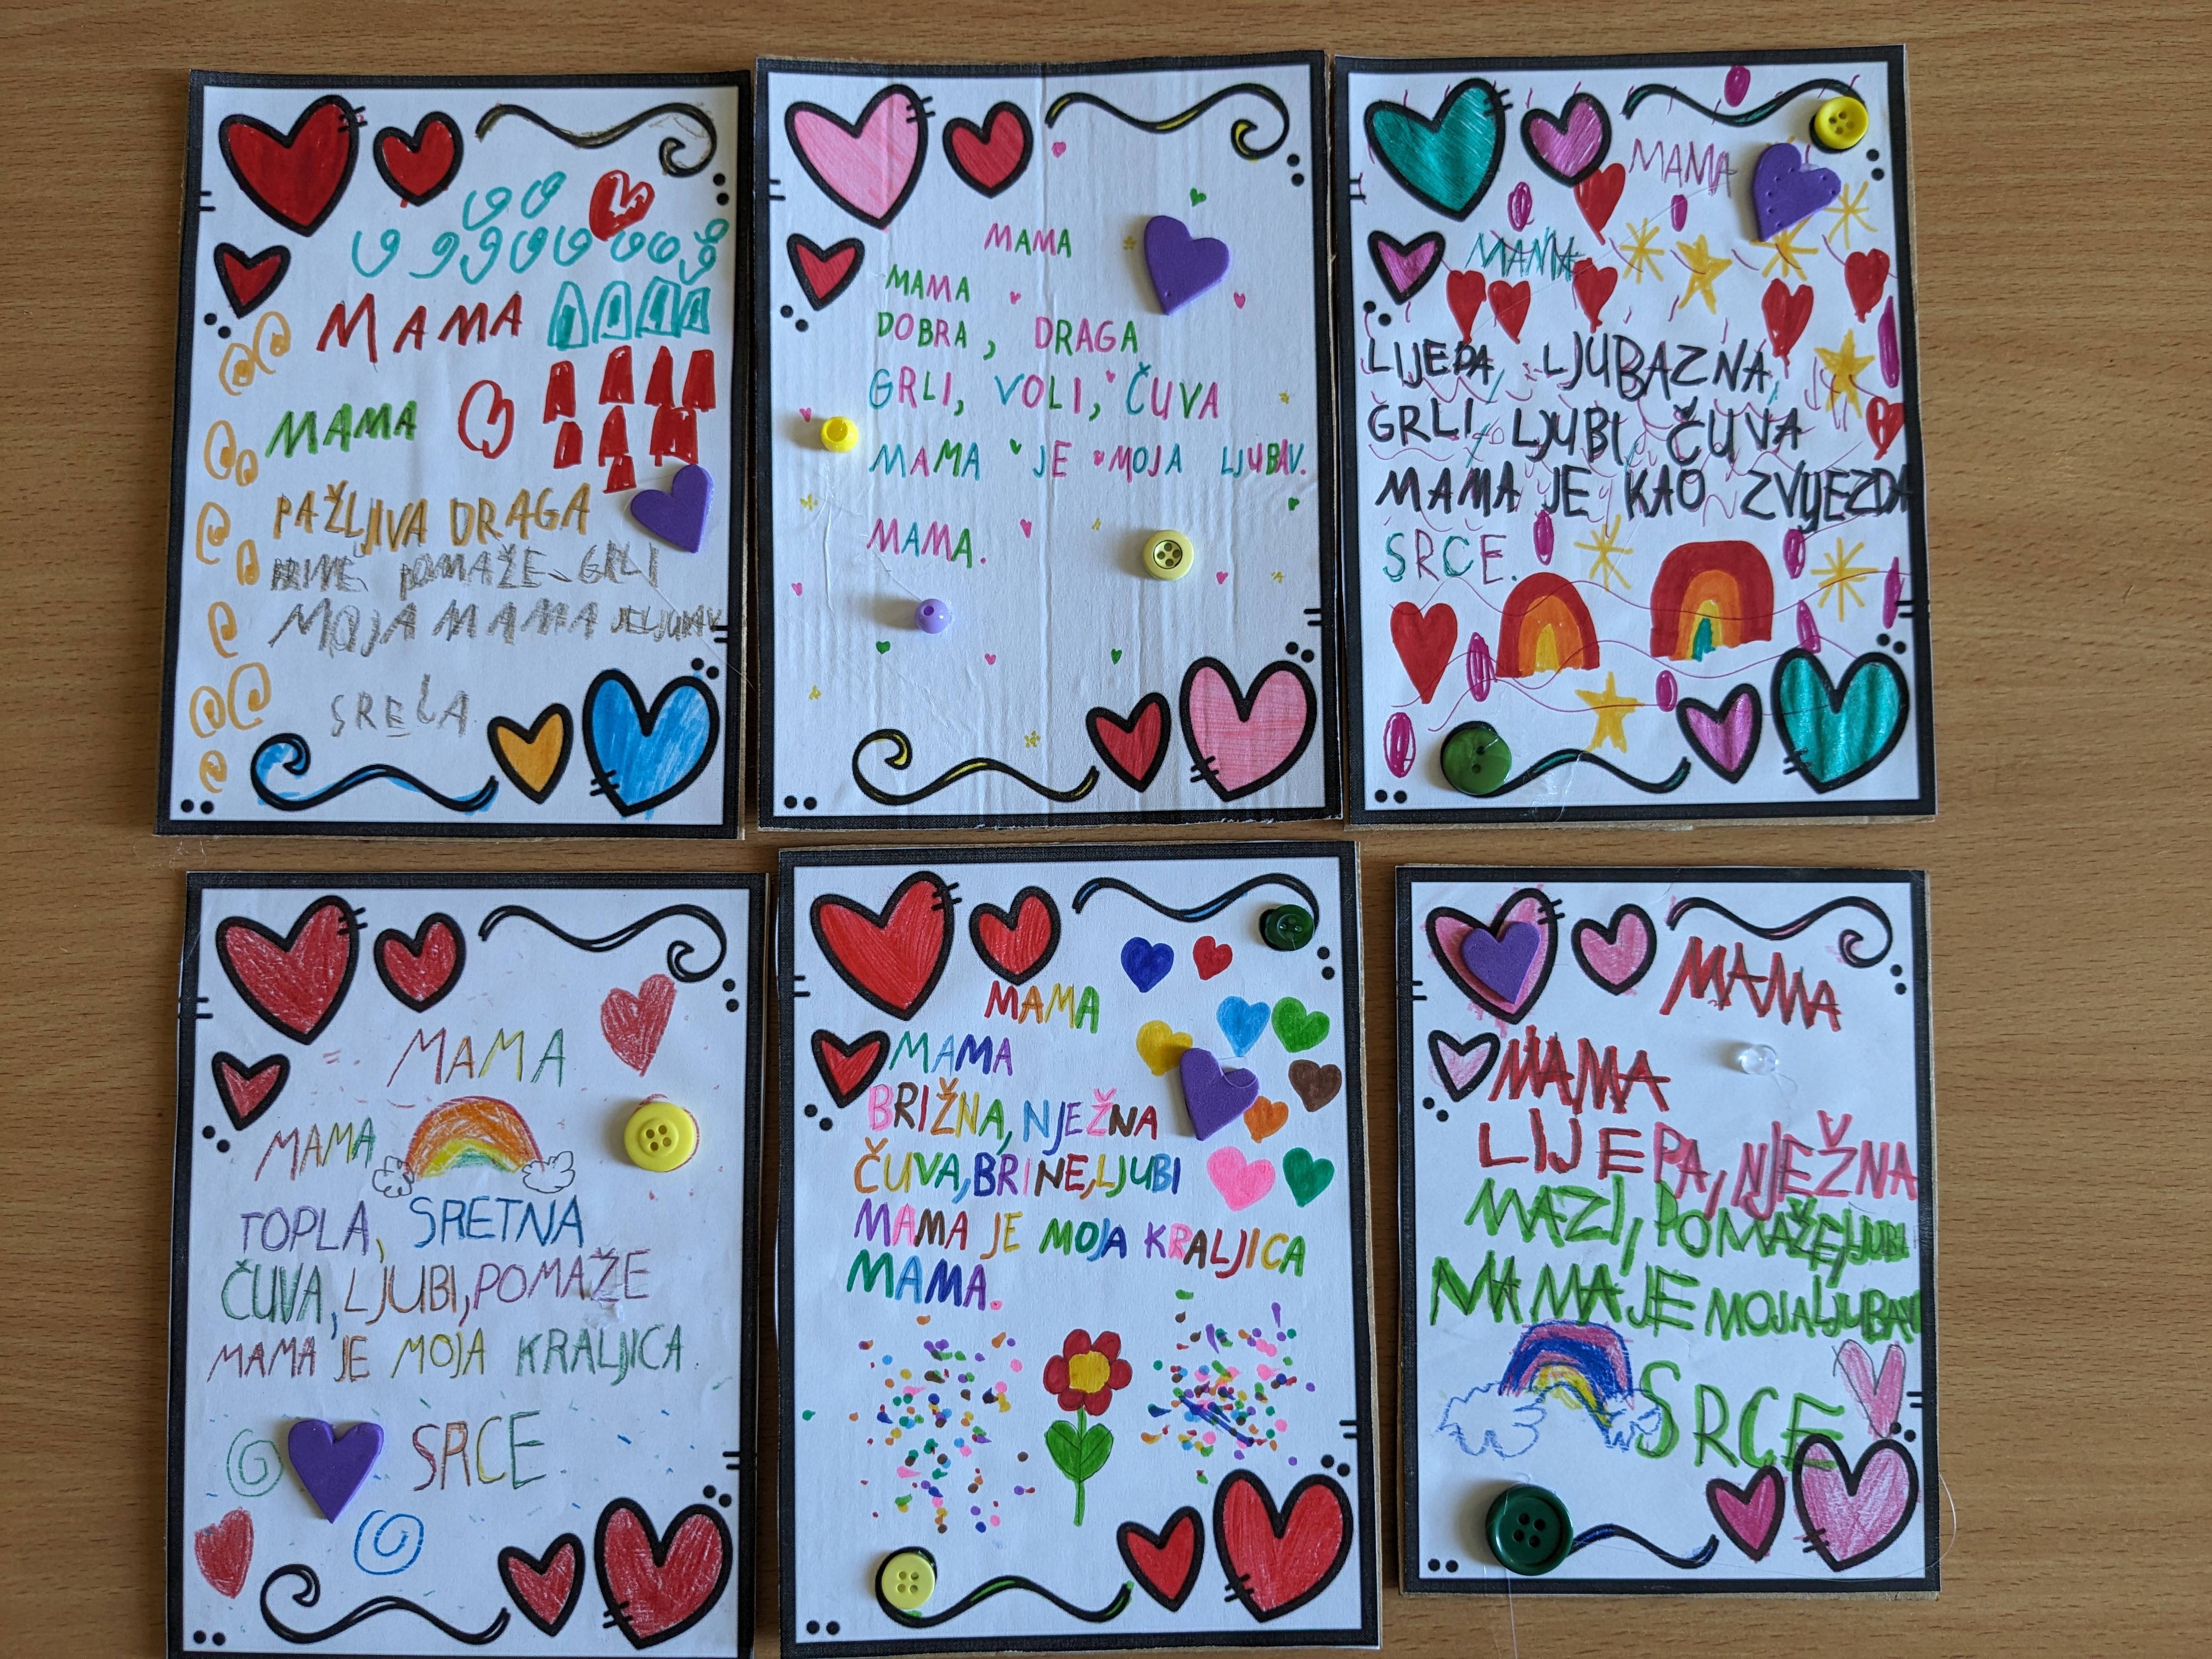 MAMA
MAMA
PAŽLJIVA DRAGA
BRINE POMAŽE GRLI
MOJA MAMA JE LJUBAV
SREĆA
MAMA
MAMA
DOBRA, DRAGA
GRLI, VOLI, ČUVA
MAMA JE MOJA LJUBAV.
MAMA.
MAMA
MAMA
LIJEPA, LJUBAZNA,
GRLI, LJUBI, ČUVA
MAMA JE KAO ZVIJEZDA
SRCE.
MAMA
MAMA
TOPLA, SRETNA
ČUVA, LJUBI, POMAŽE
MAMA JE MOJA KRALJICA
SRCE
MAMA
MAMA
BRIŽNA, NJEŽNA
ČUVA, BRINE, LJUBI
MAMA JE MOJA KRALJICA
MAMA.
MAMA
MAMA
LIJEPA, NJEŽNA
MAZI, POMAŽE, LJUBI
MAMA JE MOJA LJUBAV
SRCE